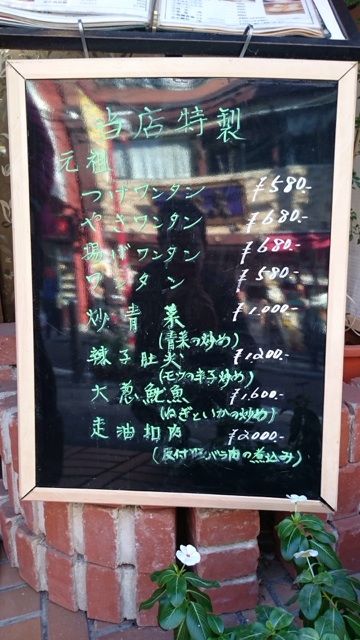 当店特製
元祖
つけワンタン ¥580.-
やきワンタン ¥680.-
揚げワンタン ¥680.-
ワンタン ¥580.-
炒青菜 ¥1,000.-
(青菜の炒め)
辣子肚尖 ¥1,200.-
(モツの辛子炒め)
大葱魷魚 ¥1,600.-
(ねぎといかの炒め)
走油扣肉 ¥2000.-
(皮付バラ肉の煮込み)